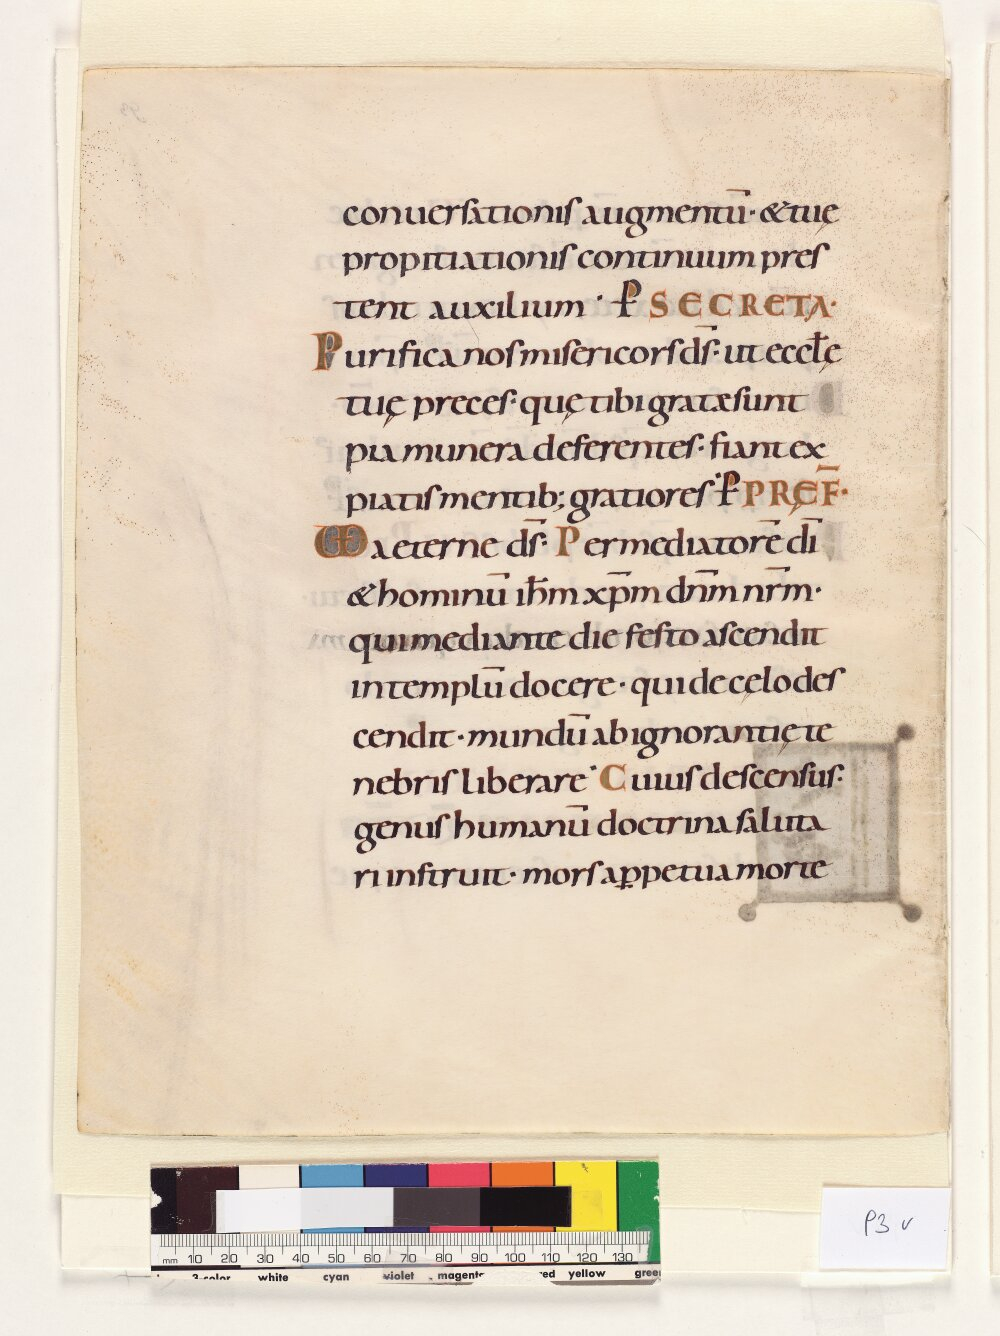 conuersationis augmentū· &tuę
propitiationis continuum pres
tent auxilium· P̵ SECRETA·
Purifica nos misericors ds̄· ut eccłę
tuę preces· quę tibi gratæ sunt
pia munera deferentes· fiant ex
piatis mentib; gratiores· P̵ PRĘF̄·
VD aeterne ds̄· Per mediatorē dī
& hominū ih̄m xp̄m dn̄m nr̄m·
qui mediante die festo ascendit
in templū docere· qui de cęlo des
cendit· mundū ab ignorantię te
nebris liberare· Cuius descensus·
genus humanū doctrina saluta
ri instruit· mors a ꝑpetua morte
mm 10 20 30 40 50 60 70 80 90 100 110 120 130
3-color white cyan violet magenta red yellow green
P3 v